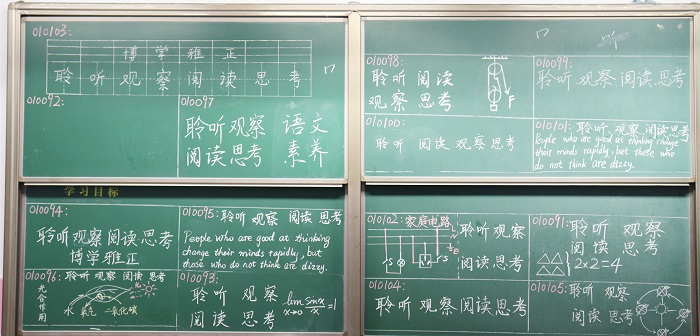 010103:
博 学 雅 正
聆 听 观 察 阅 读 思 考
口
010092:
010097
聆听观察
阅读思考
语文
素养
学习目标
010094:
聆听观察阅读思考
博学雅正
010095: 聆听 观察 阅读 思考
People who are good at thinking
change their minds rapidly, but
those who do not think are dizzy.
010096: 聆听 观察 阅读 思考
光合作用
水 氧气 二氧化碳
010093:
聆听 观察
阅读 思考
lim sinx/x=1
x→0
口 听
010098:
聆听 阅读
观察 思考
F
010099:
聆听观察阅读思考
010100:
聆听 阅读 观察 思考
010101: 聆听 观察 阅读思考
People who are good at thinking change
their minds rapidly, but those who
do not think are dizzy.
010102: 家庭电路
聆听观察
阅读思考
S
010091:
聆听 观察
阅读 思考
2×2=4
010104:
聆听观察阅读思考
010105:
聆听观察
阅读思考